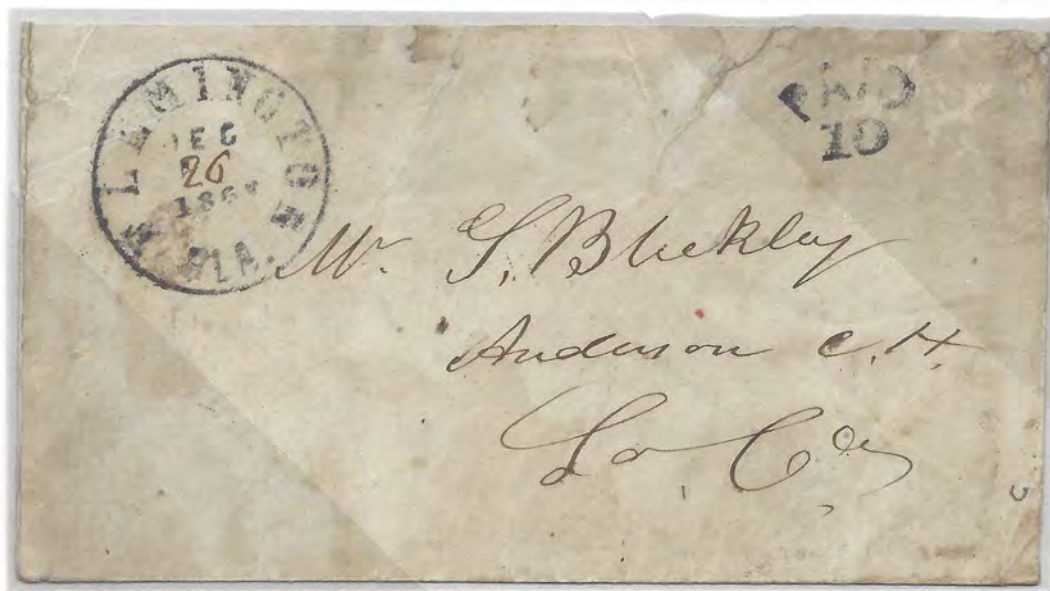 FLEMINGTON
DEC
26
FLA.
PAID
10
Mr. S. Bleckley
Anderson C.H.
So Ca